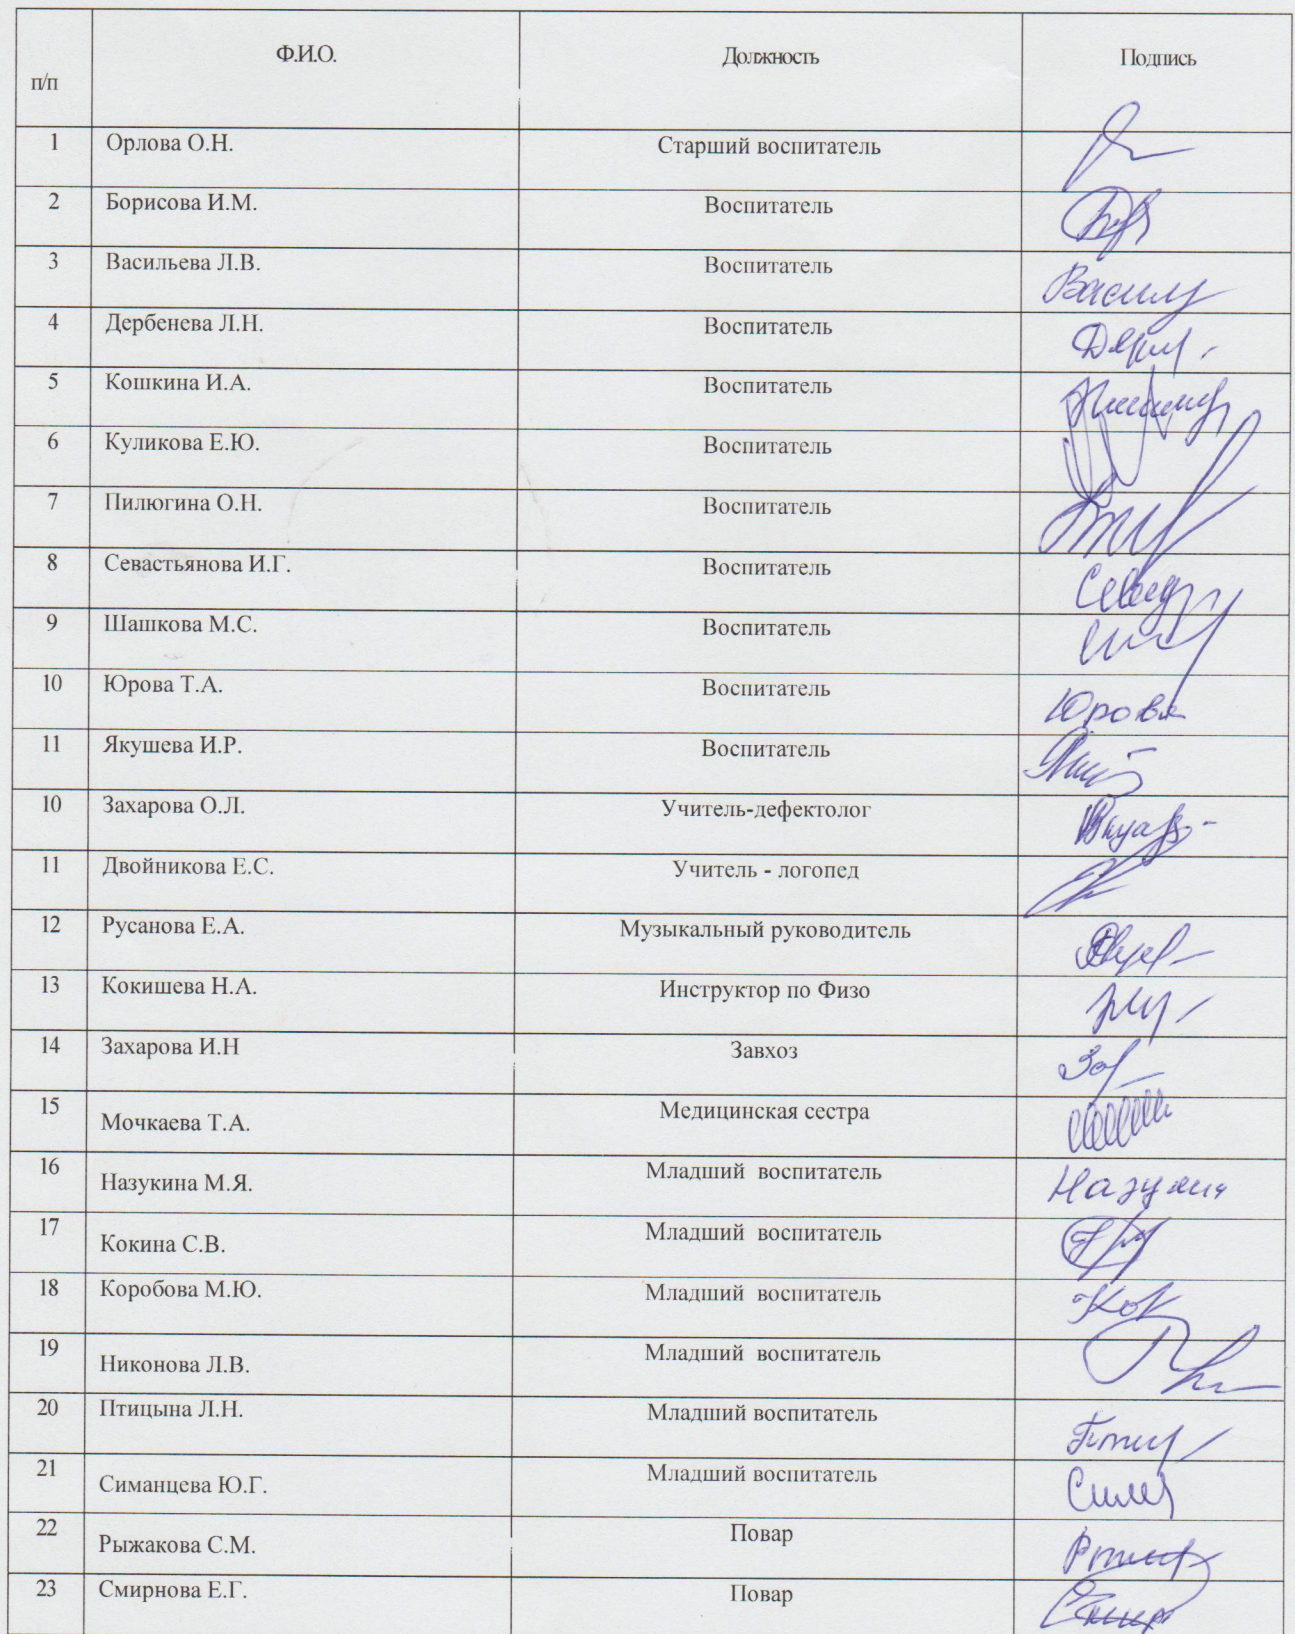 Ф.И.О. Должность Подпись
п/п
1 Орлова О.Н. Старший воспитатель
2 Борисова И.М. Воспитатель
3 Васильева Л.В. Воспитатель
4 Дербенева Л.Н. Воспитатель
5 Кошкина И.А. Воспитатель
6 Куликова Е.Ю. Воспитатель
7 Пилюгина О.Н. Воспитатель
8 Севастьянова И.Г. Воспитатель
9 Шашкова М.С. Воспитатель
10 Юрова Т.А. Воспитатель Юрова
11 Якушева И.Р. Воспитатель
10 Захарова О.Л. Учитель-дефектолог
11 Двойникова Е.С. Учитель - логопед
12 Русанова Е.А. Музыкальный руководитель
13 Кокишева Н.А. Инструктор по Физо
14 Захарова И.Н Завхоз
15 Мочкаева Т.А. Медицинская сестра
16 Назукина М.Я. Младший воспитатель
17 Кокина С.В. Младший воспитатель
18 Коробова М.Ю. Младший воспитатель
19 Никонова Л.В. Младший воспитатель
20 Птицына Л.Н. Младший воспитатель
21 Симанцева Ю.Г. Младший воспитатель
22 Рыжакова С.М. Повар
23 Смирнова Е.Г. Повар